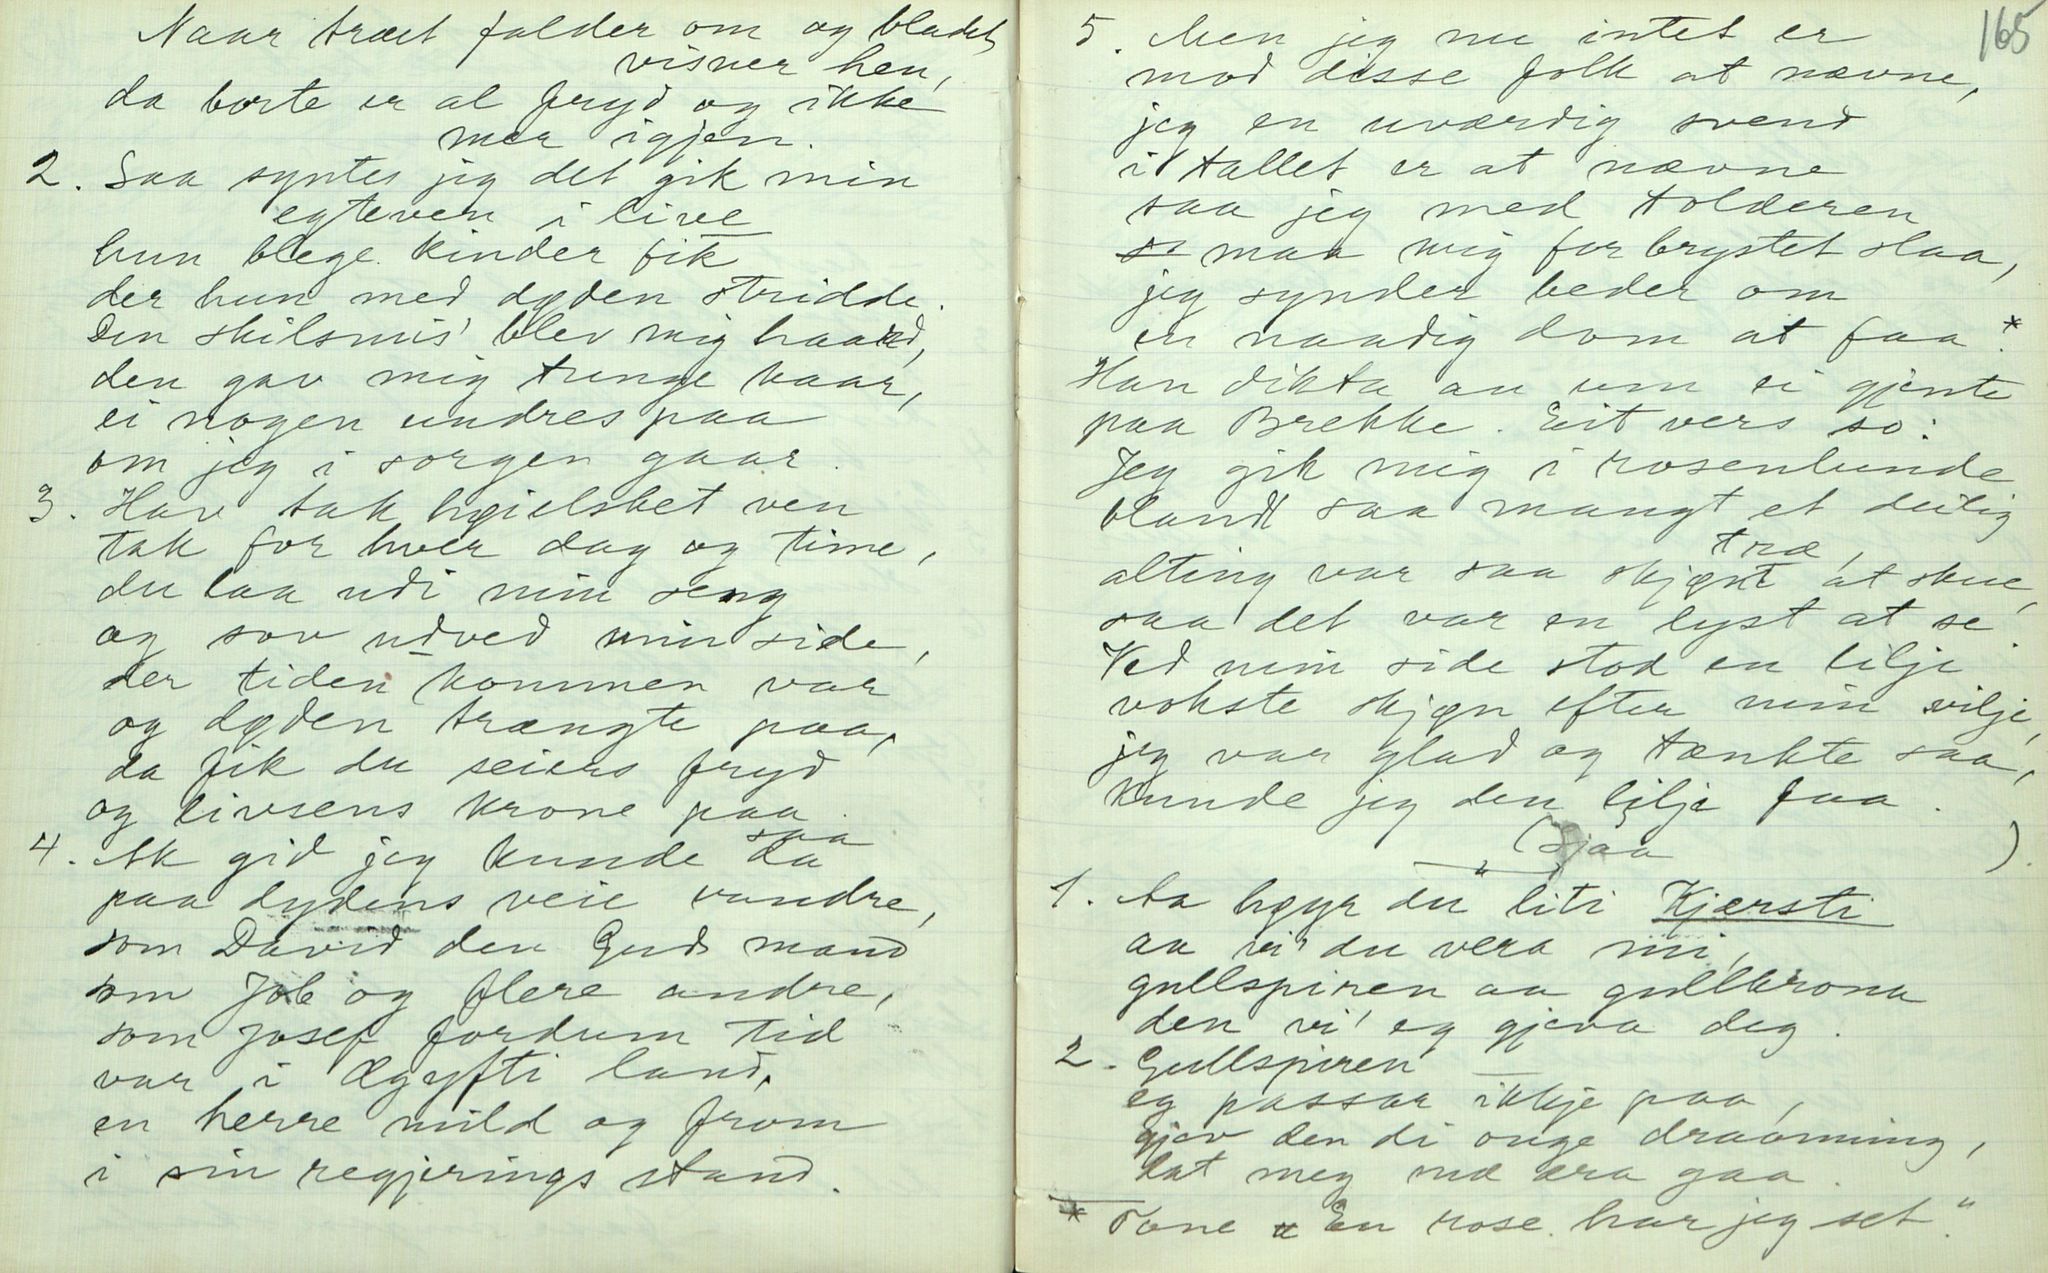 Naar træet falder om og bladet
visner hen,
da borte er al fryd og ikke
mer igjen.
2. Saa syntes jeg det gik min
egteven i live
hun blege kinder fik
der hun med døden stridde.
Den skilsmis' blev mig haard,
den gav mig tunge kaar,
ei nogen undres paa
om jeg i sorgen gaar.
3. Hav tak høielsket ven
tak for hver dag og time,
du laa udi min seng
og sov udved min side,
der tiden kommen var
og døden trængte paa,
da fik du seiers fryd
og livsens krone paa.
4. Ak gid jeg kunde saa
da
paa dydens veie vandre,
som David den Guds mand
som Job og flere andre,
som Josef fordum tid
var i Ægyfti land,
en herre mild og from
i sin regjerings stand.
165
5. Men jeg nu intet er
mod disse folk at nævne,
jeg en uværdig svend
i tallet er at nævne
saa jeg med tolderen
maa mig for brystet slaa,
jeg synder beder om
en naadig dom at faa.*
Han dikta au um ei gjente
paa Brekke. Eit vers so:
Jeg gik mig i rosenlunde
blandt saa mangt et deilig
træ,
alting var saa skjønt at skue,
saa det var en lyst at se.
Ved min side stod en lilje
vokste skjøn efter min vilje,
jeg var glad og tænkte saa,
kunde jeg den lilje faa.
(Sjaa )
1. Aa høyr du liti Kjærsti
aa vi' du vera mi,
gullspiren aa gullkrona
den vi' eg gjeva deg.
2. Gullspiren —
eg passar ikkje paa,
gjev den di onge draanning,
lat meg mæ æra gaa.
* Tone "En rose har jeg set."